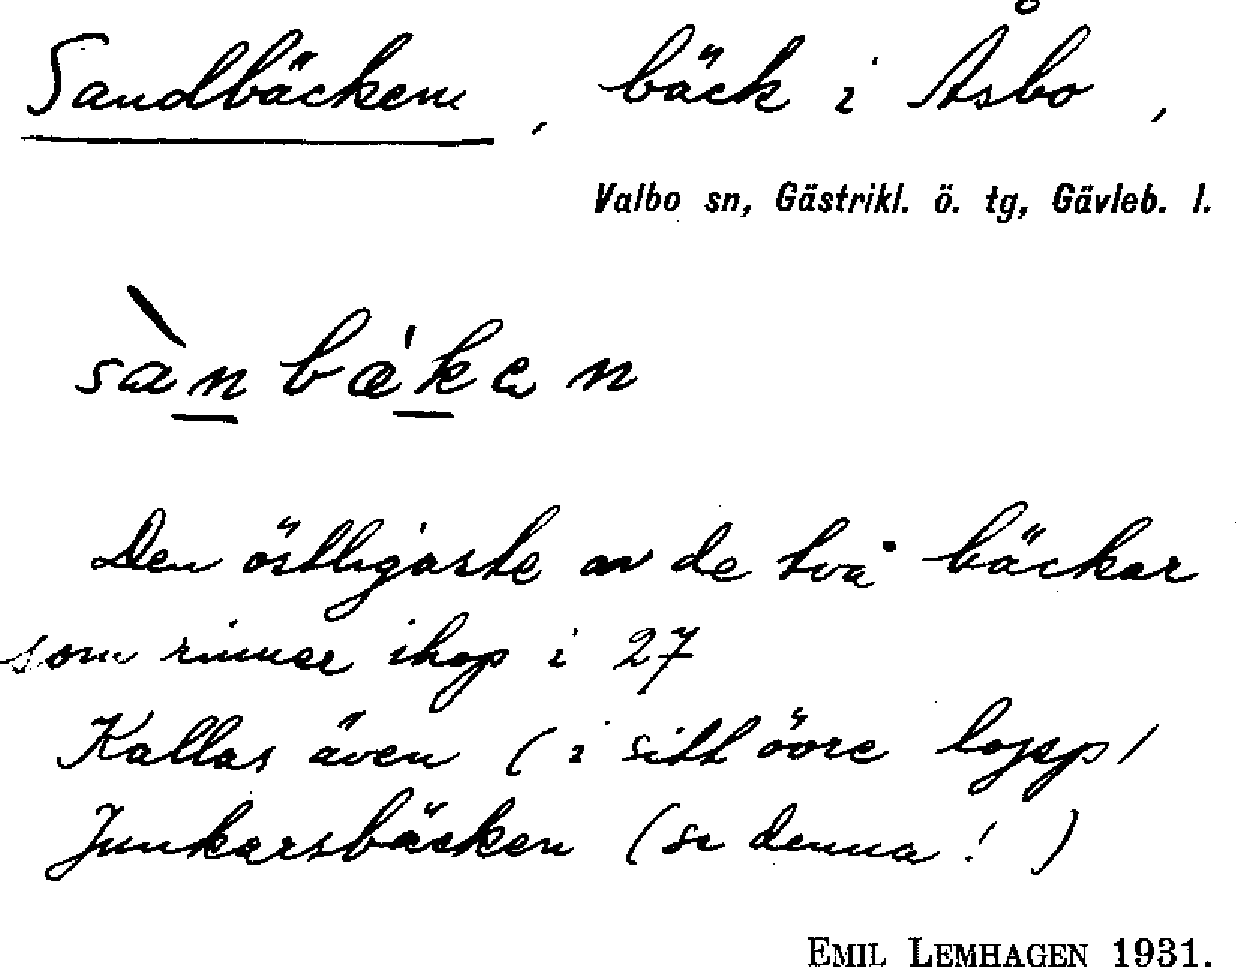 Sandbäcken, bäck i Åsbo,
Valbo sn, Gästrikl. ö. tg, Gävleb. l.
sànbæ̀ken
Den östligaste av de två bäckar
som rinner ihop i 27
Kallas även (i sitt övre lopp)
Junkarsbäcken (se denna!)
EMIL LEMHAGEN 1931.